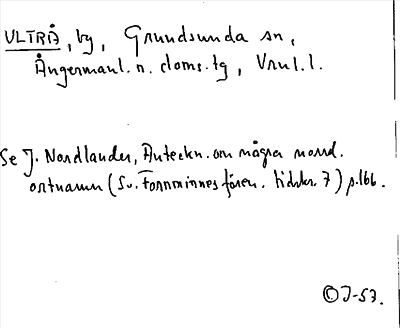 ULTRÅ, by, Grundsunda sn,
Ångermanl. n. doms. tg, Vnl. l.
Se J. Nordlander, Anteckn. om några norrl.
ortnamn (Sv. Fornminnesfören. tidskr. 7) p. 166.
©J-53.